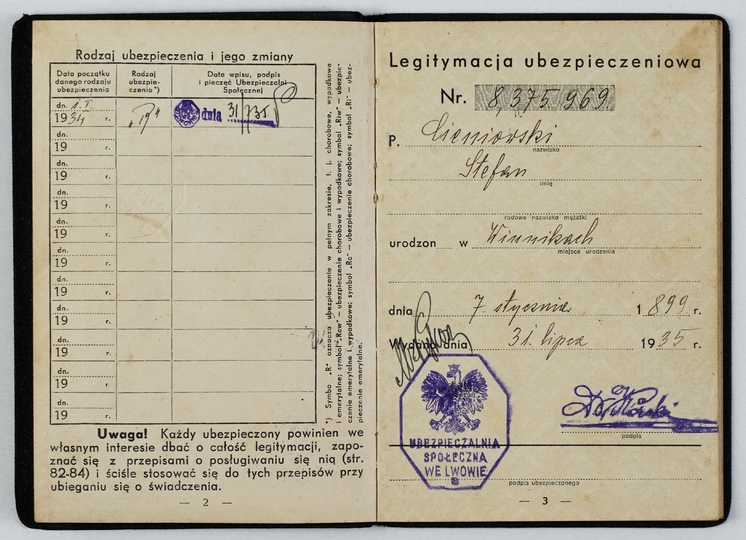 Rodzaj ubezpieczenia i jego zmiany
Data początku danego rodzaju ubezpieczenia
Rodzaj ubezpie- czenia*)
Data wpisu, podpis i pieczęć Ubezpieczalni Społecznej
dn. 1.I
1934 r.
"R"
dnia 31/7 35.
dn.
19 r.
dn.
19 r.
dn.
19 r.
dn.
19 r.
dn.
19 r.
dn.
19 r.
dn.
19 r.
dn.
19 r.
dn.
19 r.
dn.
19 r.
*) Symbo „R" oznacza ubezpieczenie w pełnym zakresie, t. j. chorobowe, wypadkowe
i emerytalne; symbol „Rcw" — ubezpieczenie chorobowe i wypadkowe; symbol „Rtw" — ubezpie-
czenie emerytalne i wypadkowe; symbol „Rc" — ubezpieczenie chorobowe; symbol „Rt" — ubez-
pieczenie emerytalne.
Uwaga! Każdy ubezpieczony powinien we
własnym interesie dbać o całość legitymacji, zapo-
znać się z przepisami o posługiwaniu się nią (str.
82-84) i ściśle stosować się do tych przepisów przy
ubieganiu się o świadczenia.
— 2 —
Legitymacja ubezpieczeniowa
Nr. 8,375,969
P. Cieniorski
nazwisko
Stefan
imię
rodowe nazwisko mężatki
urodzon w Winnikach
miejsce urodzenia
dnia 7. stycznia 1899 r.
Wydano dnia 31. lipca 1935 r.
podpis
UBEZPIECZALNIA
SPOŁECZNA
WE LWOWIE
8
podpis ubezpieczonego
— 3 —